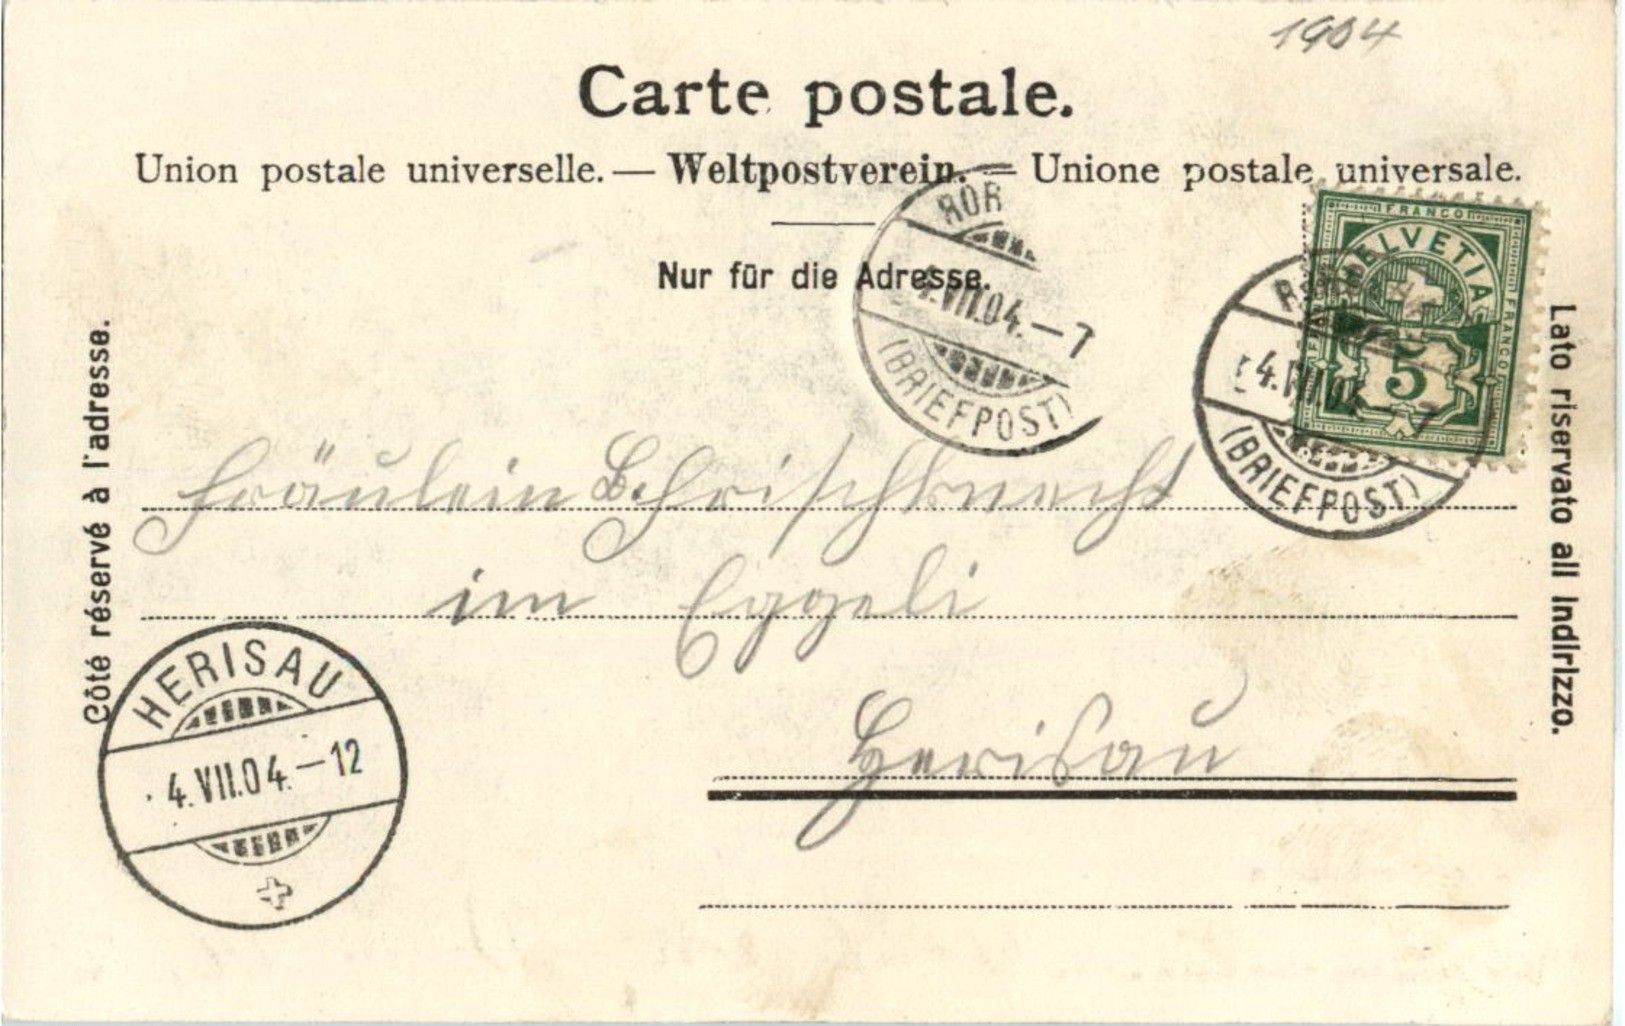 1904
Carte postale.
Union postale universelle. — Weltpostverein. — Unione postale universale.
Nur für die Adresse.
Côté réservé à l'adresse.
Lato riservato all Indirizzo.
FRANCO
HELVETIA
FRANCO
5
ROR
4.VII.04.—7
(BRIEFPOST)
4.VII.04.—7
(BRIEFPOST)
Fräulein B. Frischknecht
im Eggeli
Herisau
HERISAU
4.VII.04.—12